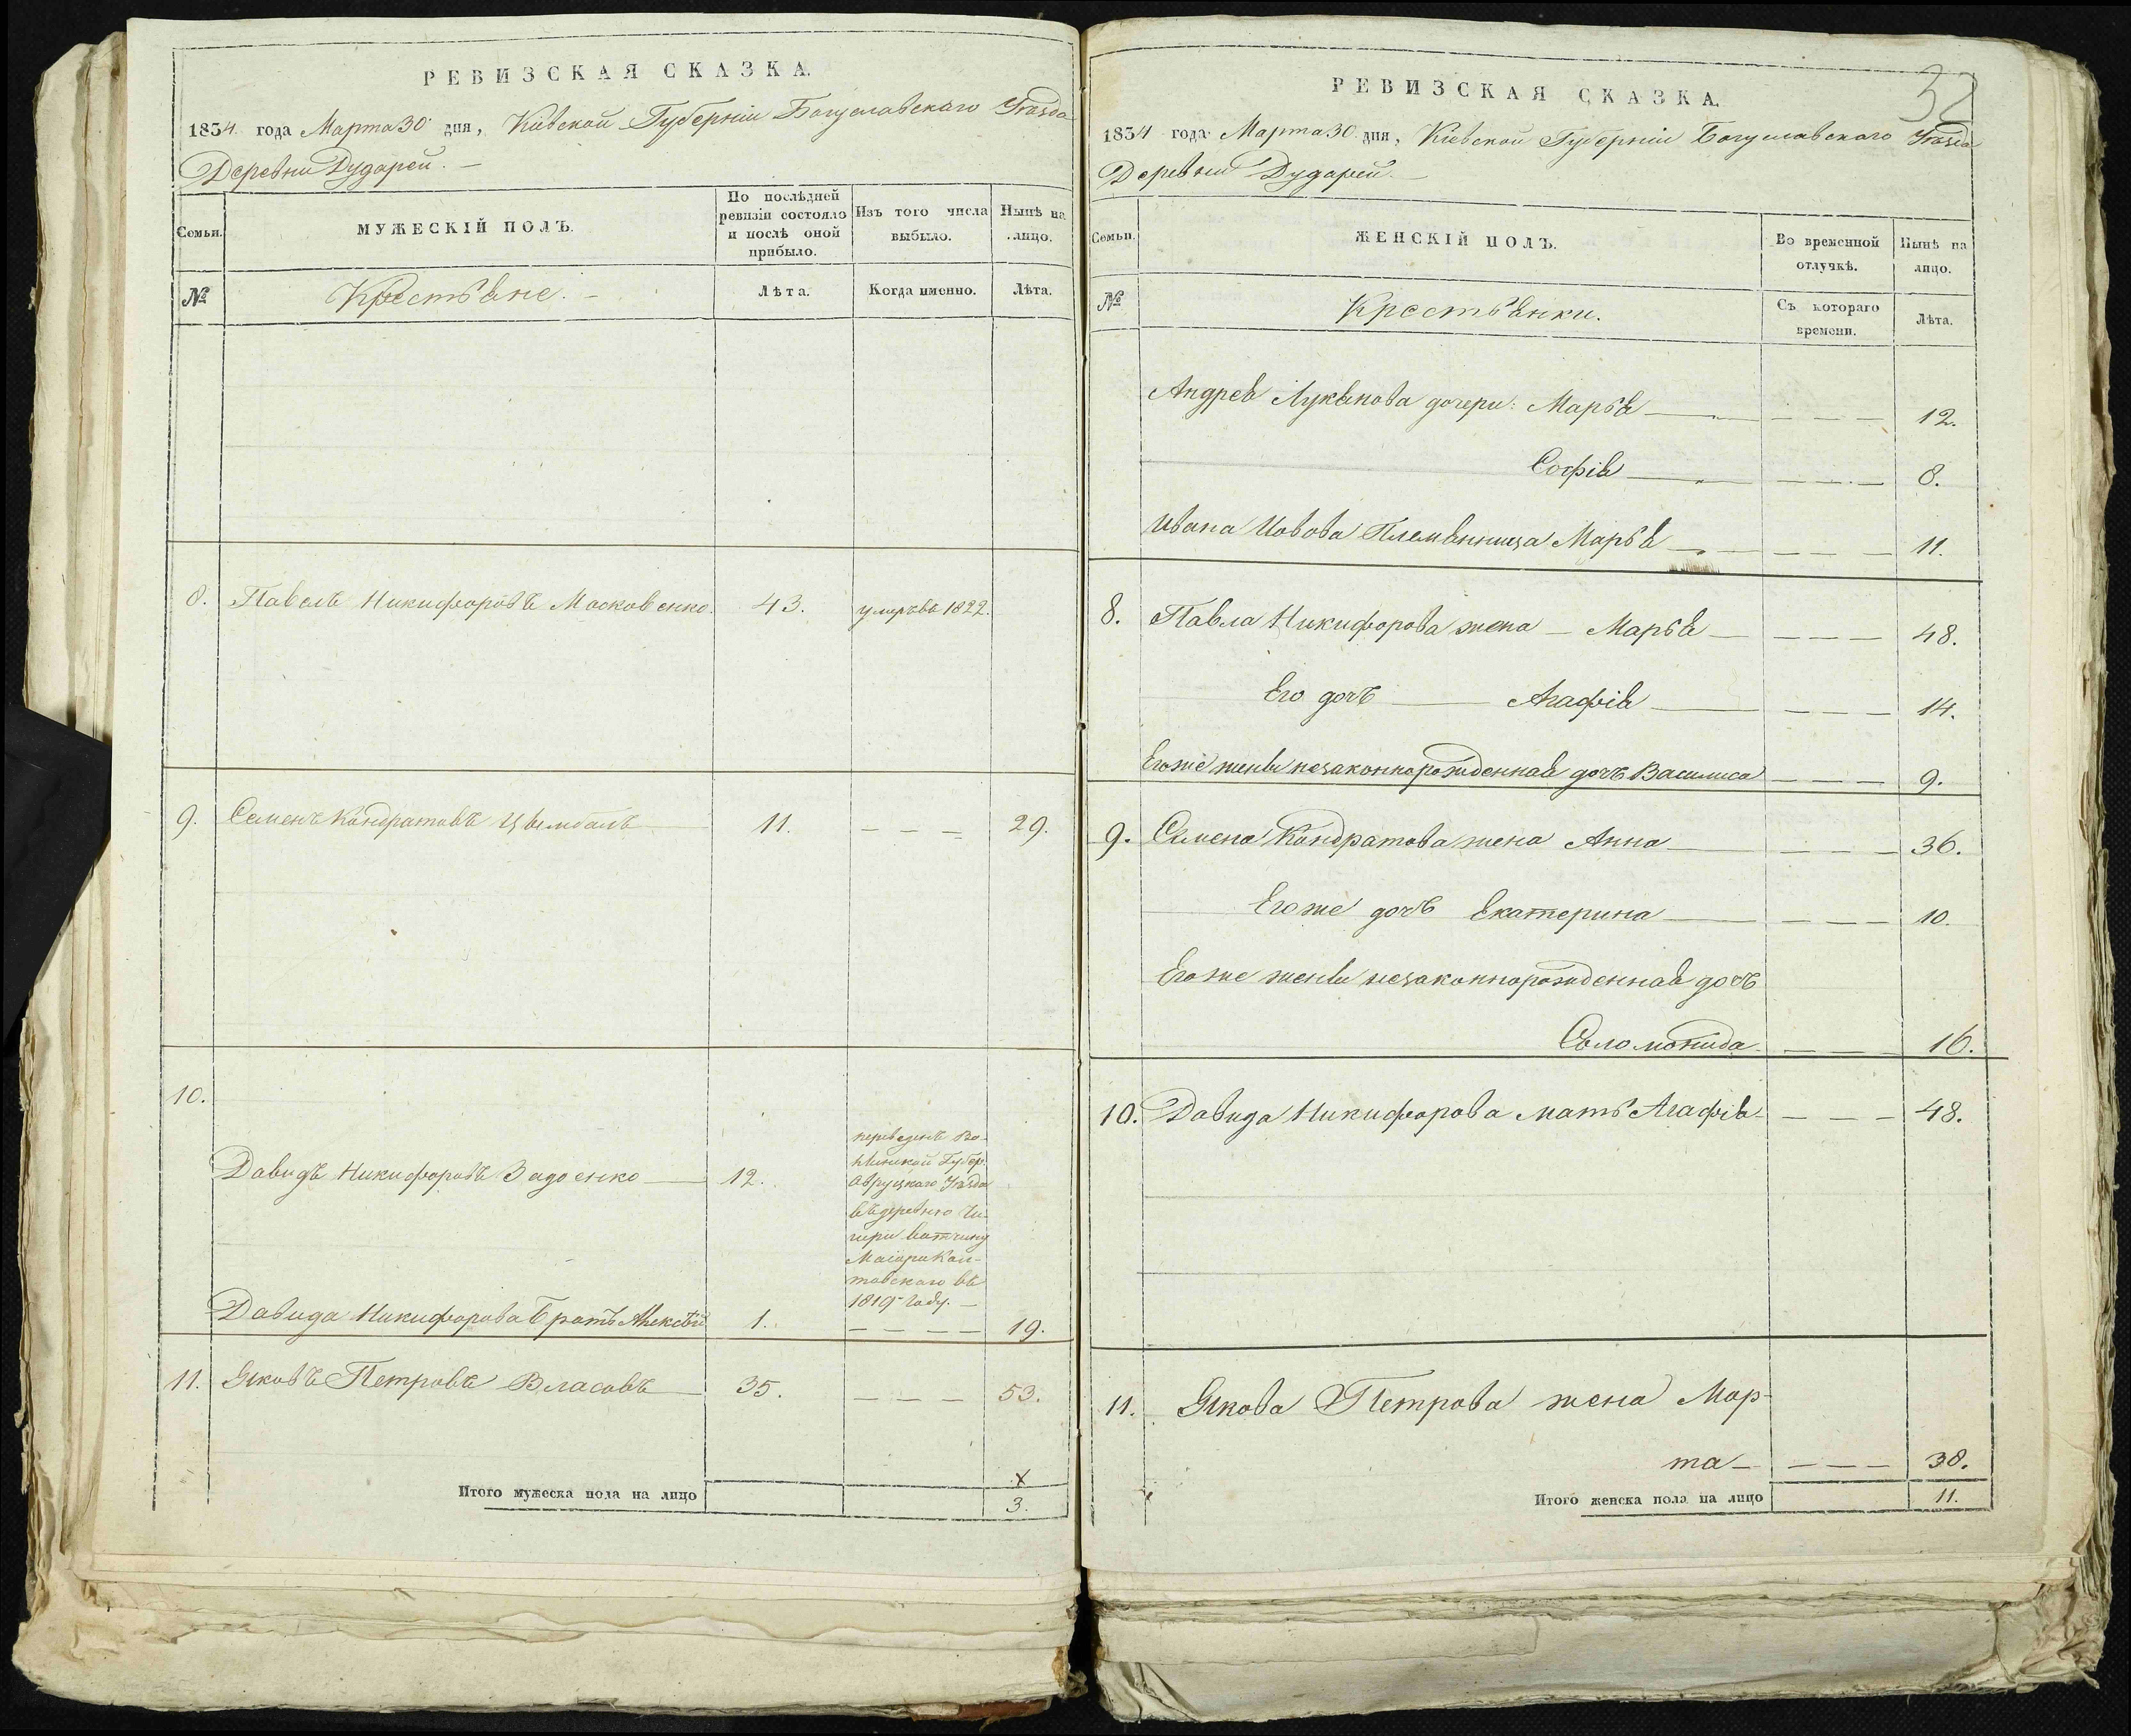 РЕВИЗСКАЯ СКАЗКА.
1834 года Марта 30 дня, Кіевской Губерніи Богуславскаго Уѣзда
Деревни Дударей. —
Семьи.
МУЖЕСКІЙ ПОЛЪ.
По послѣдней
ревизіи состояло
и послѣ оной
прибыло.
Изъ того числа
выбыло.
Нынѣ на
лицо.
№
Крестьяне. —
Лѣта.
Когда именно.
Лѣта.
8. Павелъ Никифоровъ Московенко. 43. умеръ въ 1822.
9. Семенъ Кондратовъ Цымбалъ 11. — — — 29.
10.
переведенъ Во-
лынской Губер.
Овруцкаго Уѣзда
въ деревню Чи-
гири вотчину
Маіора
1819 году. —
Давидъ Никифоровъ Задоенко 12.
Давида Никифорова братъ Алексѣй 1. — — — — 19.
11. Яковъ Петровъ Власовъ 35. — — — 53.
x
Итого мужеска пола на лицо 3.
32
РЕВИЗСКАЯ СКАЗКА.
1834 года Марта 30 дня, Кіевской Губерніи Богуславскаго Уѣзда
Деревни Дударей. —
Семьи.
ЖЕНСКІЙ ПОЛЪ.
Во временной
отлучкѣ.
Нынѣ на
лицо.
№
Крестьянки.
Съ котораго
времени.
Лѣта.
Андрея Лукьянова дочери: Марья — — — 12.
Софія — — — 8.
Ивана Иовова Племянница Марья — — — 11.
8. Павла Никифорова жена — Марья — — — 48.
Его дочь — Агафія — — — 14.
Его же жены незаконнорожденная дочь Василиса — — — 9.
9. Семена Кондратова жена Анна — — — 36.
Его же дочь Екатерина — — — 10.
Его же жены незаконнорожденная дочь
Соломонида — — — 16.
10. Давида Никифорова мать Агафія — — — 48.
11. Якова Петрова жена Мар-
та — — — — 38.
Итого женска пола на лицо 11.